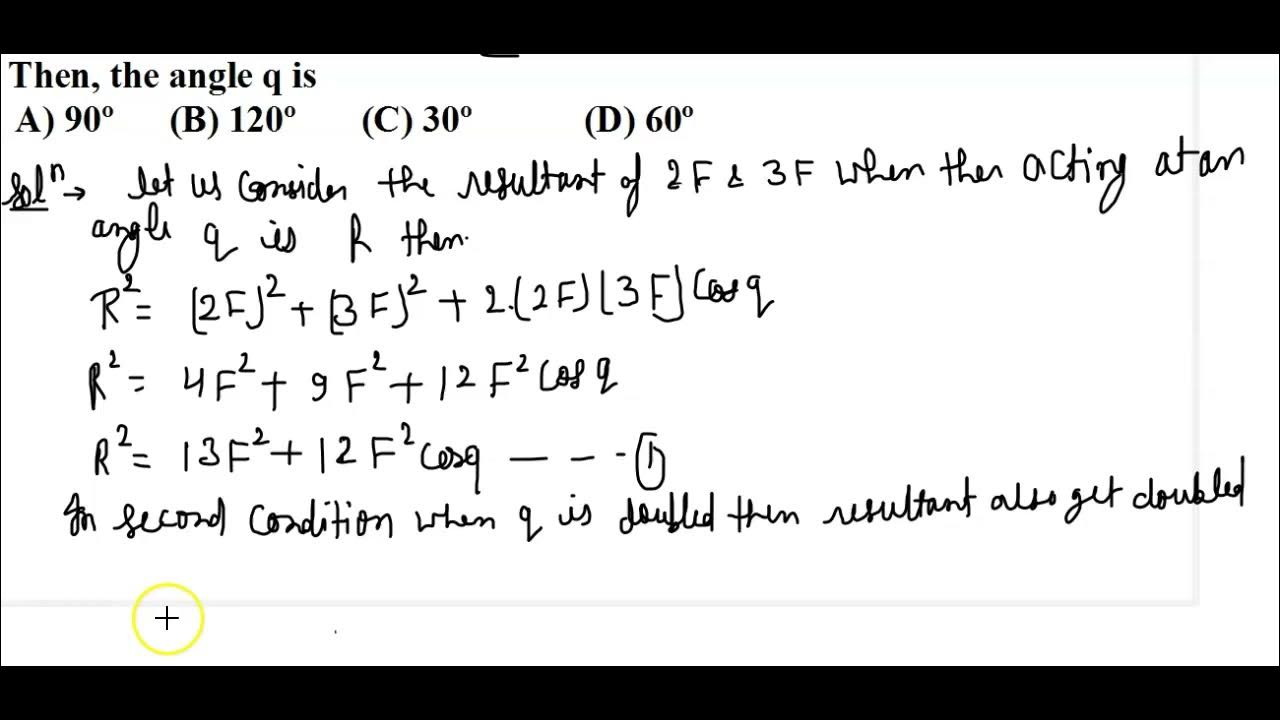 Then, the angle q is
A) 90º (B) 120º (C) 30º (D) 60º
Solⁿ → let us consider the resultant of 2F & 3F when then acting at an
angle q is R then.
R² = (2F)² + (3F)² + 2.(2F)(3F) Cos q
R² = 4F² + 9F² + 12F² Cos q
R² = 13F² + 12F² cosq — - - - ①
In second condition when q is doubled then resultant also get doubled